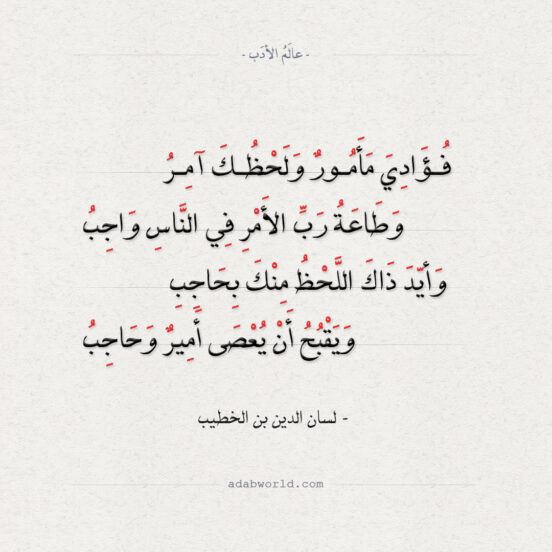 - عالَمُ الأدَب -
فُـؤَادِيَ مَأْمُـورٌ وَلَحْظُـكَ آمِـرُ
وَطَاعَةُ رَبِّ الأَمْرِ فِي النَّاسِ وَاجِبُ
وَأيّدَ ذَاكَ اللَّحْظُ مِنْكَ بِحَاجِبِ
وَيَقْبُحُ أَنْ يُعْصَى أَمِيرٌ وَحَاجِبُ
- لسان الدين بن الخطيب
adabworld.com